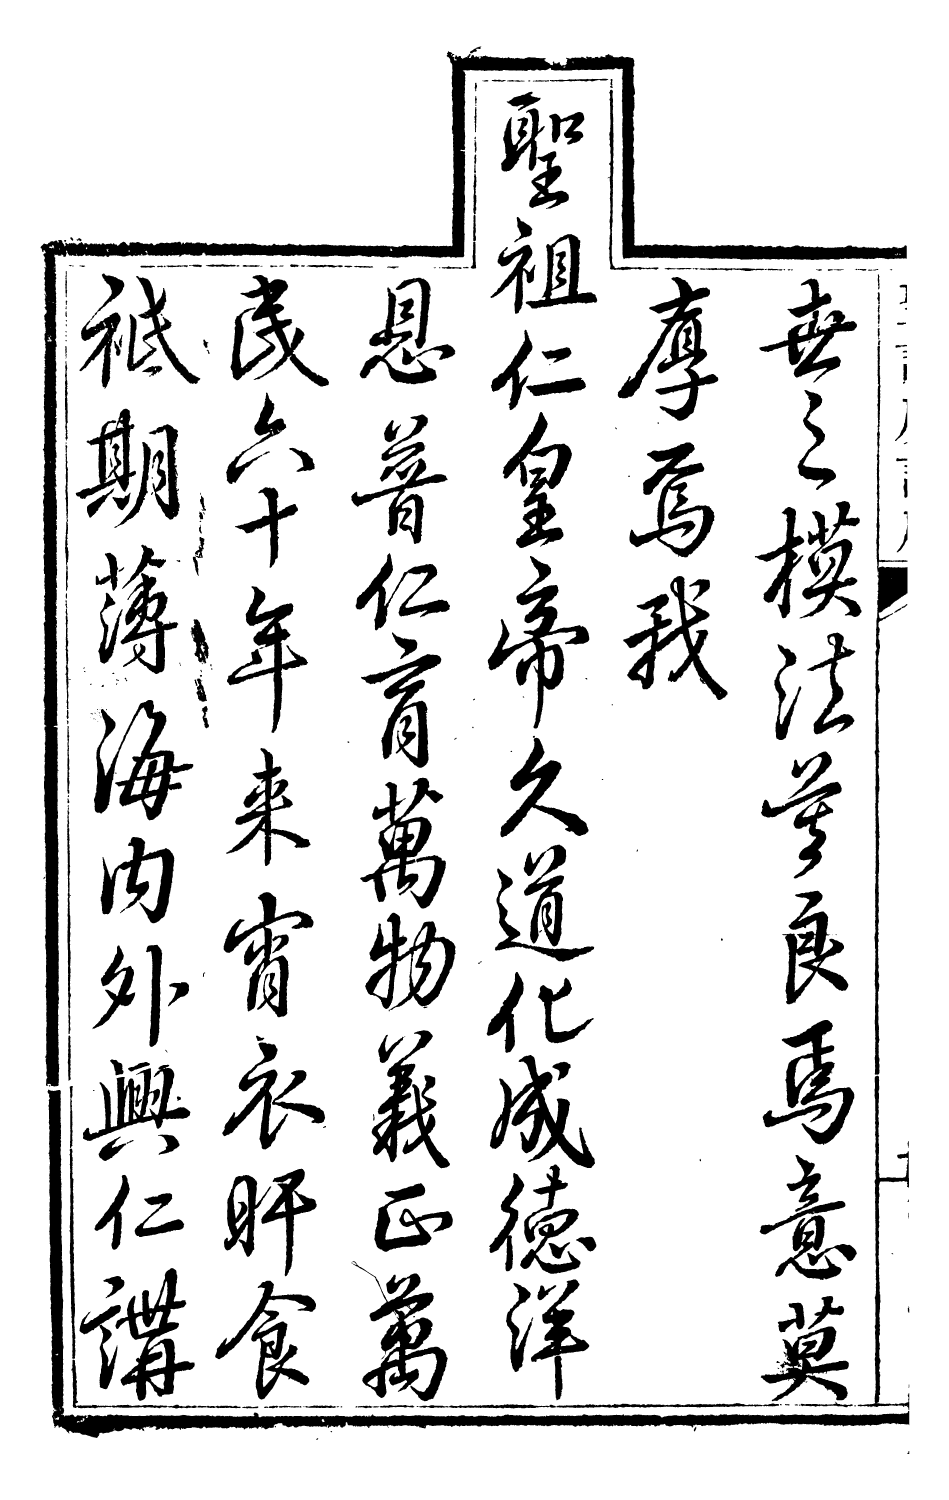 世之模法莫良焉意莫
厚焉我
聖祖仁皇帝久道化成德洋
恩普仁育萬物義正萬
民六十年來宵衣旰食
祗期薄海内外興仁講